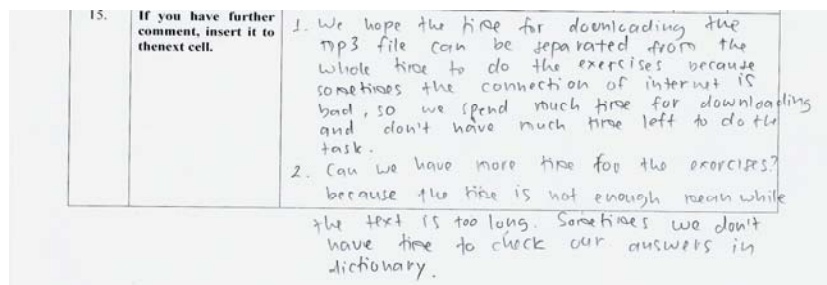 15.
If you have further
comment, insert it to
thenext cell.
1. We hope the time for downloading the
mp3 file can be separated from the
whole time to do the exercises because
sometimes the connection of internet is
bad, so we spend much time for downloading
and don't have much time left to do the
task.
2. Can we have more time for the exercises?
because the time is not enough mean while
the text is too long. Sometimes we don't
have time to check our answers in
dictionary.